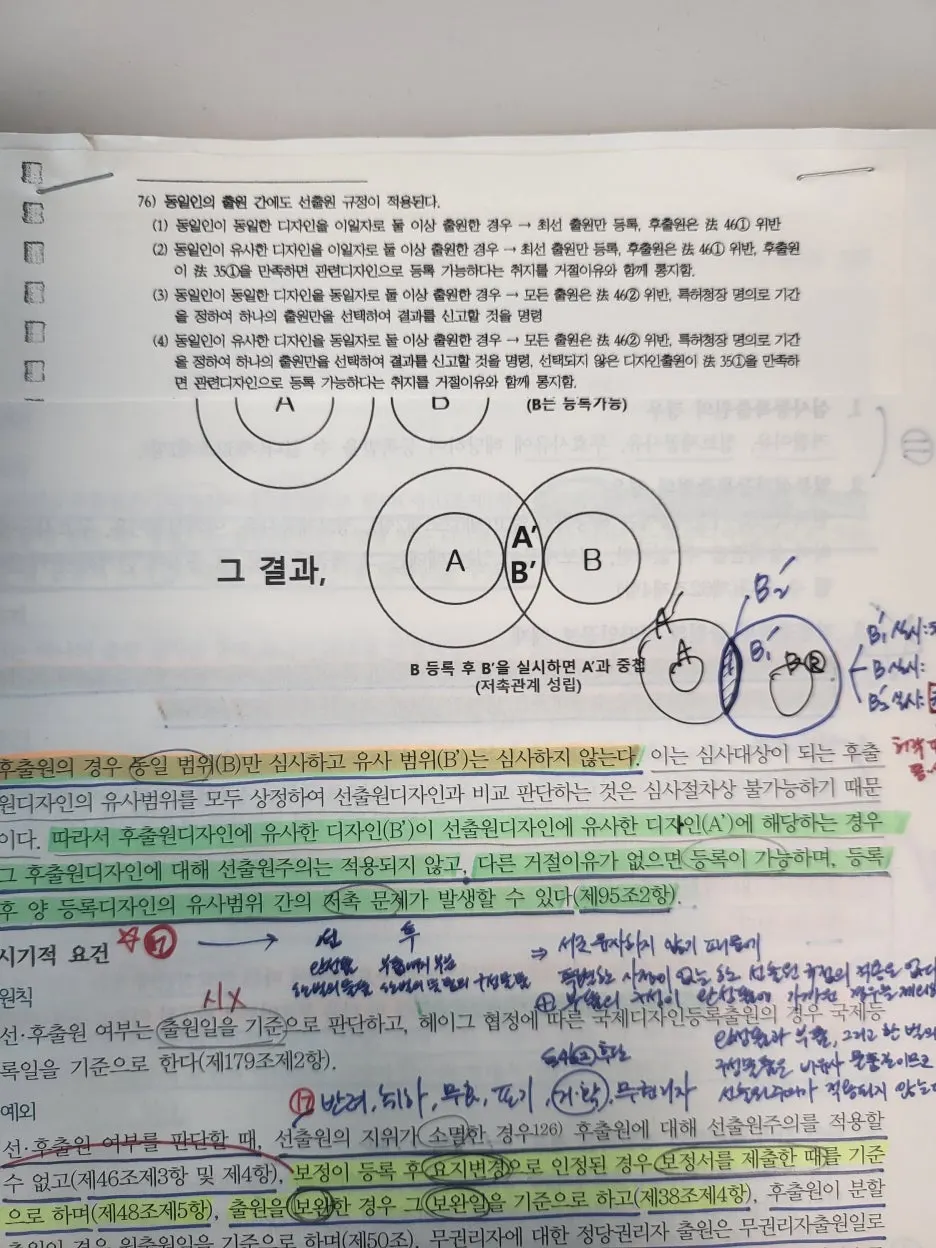 76) 동일인의 출원 간에도 선출원 규정이 적용된다.
(1) 동일인이 동일한 디자인을 이일자로 둘 이상 출원한 경우 → 최선 출원만 등록, 후출원은 法 46① 위반
(2) 동일인이 유사한 디자인을 이일자로 둘 이상 출원한 경우 → 최선 출원만 등록, 후출원은 法 46① 위반, 후출원
이 法 35①을 만족하면 관련디자인으로 등록 가능하다는 취지를 거절이유와 함께 통지함.
(3) 동일인이 동일한 디자인을 동일자로 둘 이상 출원한 경우 → 모든 출원은 法 46② 위반, 특허청장 명의로 기간
을 정하여 하나의 출원만을 선택하여 결과를 신고할 것을 명령
(4) 동일인이 유사한 디자인을 동일자로 둘 이상 출원한 경우 → 모든 출원은 法 46② 위반, 특허청장 명의로 기간
을 정하여 하나의 출원만을 선택하여 결과를 신고할 것을 명령, 선택되지 않은 디자인출원이 法 35①을 만족하
면 관련디자인으로 등록 가능하다는 취지를 거절이유와 함께 통지함.
A B (B는 등록가능)
그 결과,
A A′ B′ B
B 등록 후 B′을 실시하면 A′과 중첩
(저촉관계 성립)
A′ A B₂′ B₁′ B
B₁′ 실시:
B 실시:
B₂′ 실시:
후출원의 경우 동일 범위(B)만 심사하고 유사 범위(B′)는 심사하지 않는다. 이는 심사대상이 되는 후출
원디자인의 유사범위를 모두 상정하여 선출원디자인과 비교 판단하는 것은 심사절차상 불가능하기 때문
이다. 따라서 후출원디자인에 유사한 디자인(B′)이 선출원디자인에 유사한 디자인(A′)에 해당하는 경우
그 후출원디자인에 대해 선출원주의는 적용되지 않고, 다른 거절이유가 없으면 등록이 가능하며, 등록
후 양 등록디자인의 유사범위 간의 저촉 문제가 발생할 수 있다(제95조2항).
시기적 요건 ⑰ → 선 후
⇒ 서로 유사하지 않기 때문에
특별한 사정이 없는 한 선출원 규정의 적용은 없다
원칙
시X
선·후출원 여부는 출원일을 기준으로 판단하고, 헤이그 협정에 따른 국제디자인등록출원의 경우 국제등
록일을 기준으로 한다(제179조제2항).
완성품과 부품, 그리고 한 벌의
구성물품은 비유사 물품
선출원주의가 적용되지 않는다
예외
⑰ 반려, 취하, 무효, 포기, 거·확, 무권리자
선·후출원 여부를 판단할 때, 선출원의 지위가 소멸한 경우126) 후출원에 대해 선출원주의를 적용할
수 없고(제46조제3항 및 제4항), 보정이 등록 후 요지변경으로 인정된 경우 보정서를 제출한 때를 기준
으로 하며(제48조제5항), 출원을 보완한 경우 그 보완일을 기준으로 하고(제38조제4항), 후출원이 분할
출원인 경우 원출원일을 기준으로 하며(제50조), 무권리자에 대한 정당권리자 출원은 무권리자출원일로